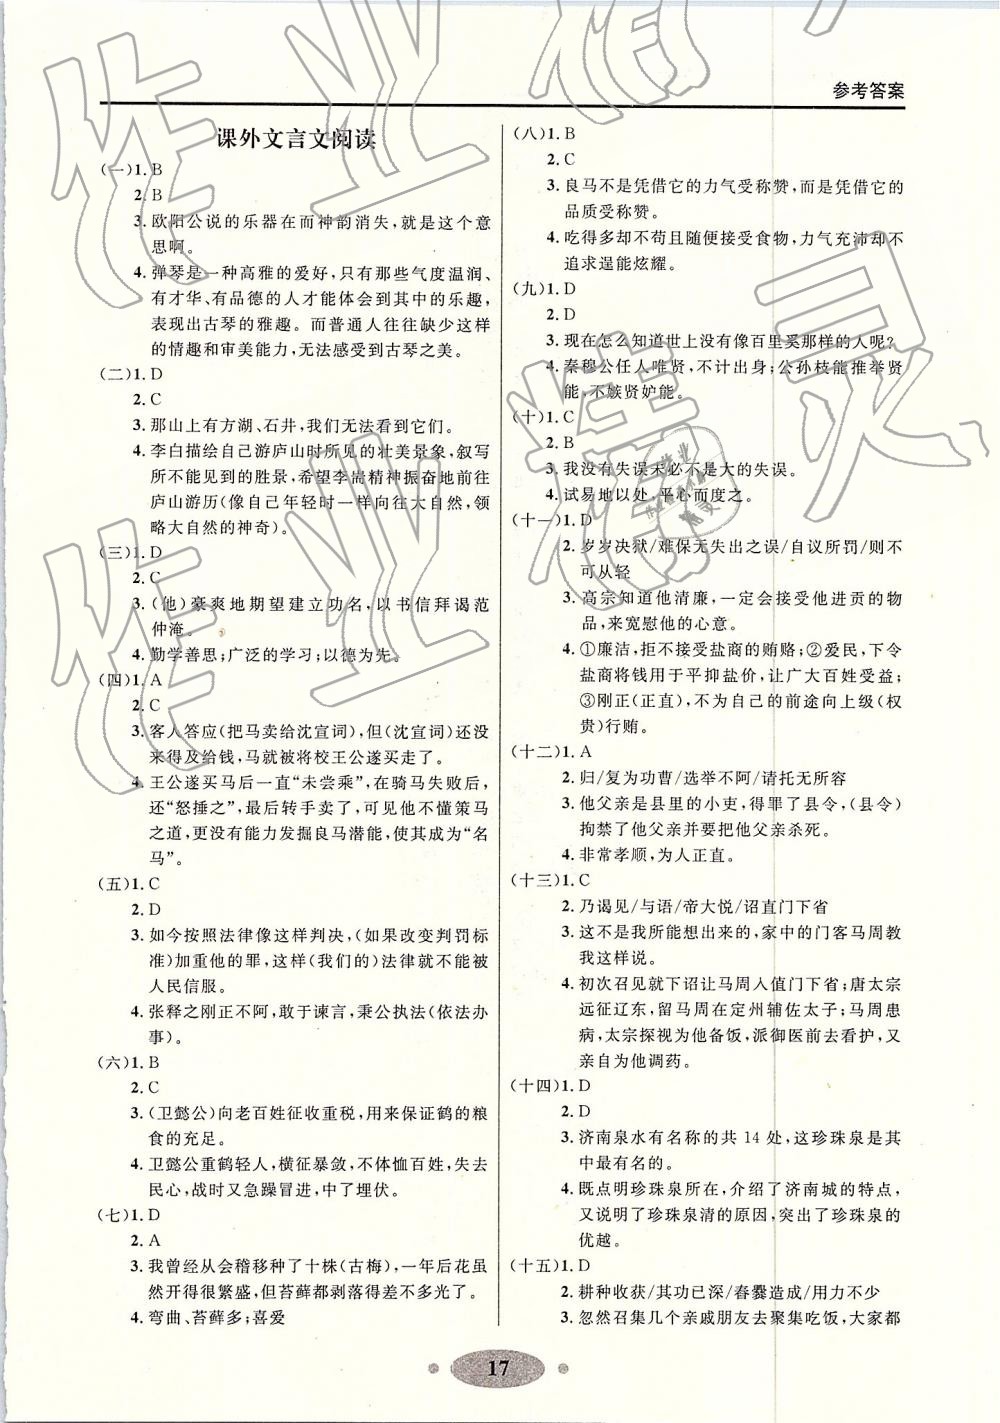 参考答案
课外文言文阅读
(一)1. B
2. B
3. 欧阳公说的乐器在而神韵消失,就是这个意
思啊。
4. 弹琴是一种高雅的爱好,只有那些气度温润、
有才华、有品德的人才能体会到其中的乐趣,
表现出古琴的雅趣。而普通人往往缺少这样
的情趣和审美能力,无法感受到古琴之美。
(二)1. D
2. C
3. 那山上有方湖、石井,我们无法看到它们。
4. 李白描绘自己游庐山时所见的壮美景象,叙写
所不能见到的胜景,希望李嵩精神振奋地前往
庐山游历(像自己年轻时一样向往大自然,领
略大自然的神奇)。
(三)1. D
2. C
3. (他)豪爽地期望建立功名,以书信拜谒范
仲淹。
4. 勤学善思;广泛的学习;以德为先。
(四)1. A
2. C
3. 客人答应(把马卖给沈宣词),但(沈宣词)还没
来得及给钱,马就被将校王公遂买走了。
4. 王公遂买马后一直“未尝乘”,在骑马失败后,
还“怒捶之”,最后转手卖了,可见他不懂策马
之道,更没有能力发掘良马潜能,使其成为“名
马”。
(五)1. C
2. D
3. 如今按照法律像这样判决,(如果改变判罚标
准)加重他的罪,这样(我们的)法律就不能被
人民信服。
4. 张释之刚正不阿,敢于谏言,秉公执法(依法办
事)。
(六)1. B
2. C
3. (卫懿公)向老百姓征收重税,用来保证鹤的粮
食的充足。
4. 卫懿公重鹤轻人,横征暴敛,不体恤百姓,失去
民心,战时又急躁冒进,中了埋伏。
(七)1. D
2. A
3. 我曾经从会稽移种了十株(古梅),一年后花虽
然开得很繁盛,但苔藓都剥落得差不多光了。
4. 弯曲、苔藓多;喜爱
(八)1. B
2. C
3. 良马不是凭借它的力气受称赞,而是凭借它的
品质受称赞。
4. 吃得多却不苟且随便接受食物,力气充沛却不
追求逞能炫耀。
(九)1. D
2. D
3. 现在怎么知道世上没有像百里奚那样的人呢?
4. 秦穆公任人唯贤,不计出身;公孙枝能推举贤
能,不嫉贤妒能。
(十)1. C
2. B
3. 我没有失误未必不是大的失误。
4. 试易地以处,平心而度之。
(十一)1. D
2. 岁岁决狱/难保无失出之误/自议所罚/则不
可从轻
3. 高宗知道他清廉,一定会接受他进贡的物
品,来宽慰他的心意。
4. ①廉洁,拒不接受盐商的贿赂;②爱民,下令
盐商将钱用于平抑盐价,让广大百姓受益;
③刚正(正直),不为自己的前途向上级(权
贵)行贿。
(十二)1. A
2. 归/复为功曹/选举不阿/请托无所容
3. 他父亲是县里的小吏,得罪了县令,(县令)
拘禁了他父亲并要把他父亲杀死。
4. 非常孝顺,为人正直。
(十三)1. C
2. 乃谒见/与语/帝大悦/诏直门下省
3. 这不是我所能想出来的,家中的门客马周教
我这样说。
4. 初次召见就下诏让马周入值门下省;唐太宗
远征辽东,留马周在定州辅佐太子;马周患
病,太宗探视为他备饭,派御医前去看护,又
亲自为他调药。
(十四)1. D
2. D
3. 济南泉水有名称的共 14 处,这珍珠泉是其
中最有名的。
4. 既点明珍珠泉所在,介绍了济南城的特点,
又说明了珍珠泉清的原因,突出了珍珠泉的
优越。
(十五)1. D
2. 耕种收获/其功已深/舂爨造成/用力不少
3. 忽然召集几个亲戚朋友去聚集吃饭,大家都
17
作业精灵
作业精灵